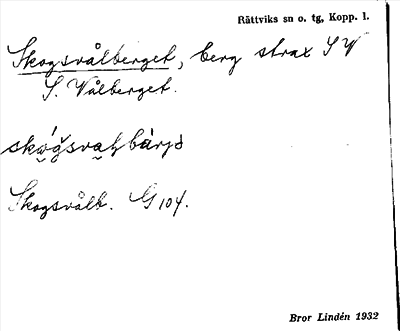 Rättviks sn o. tg, Kopp. l.
Skogsvålberget, berg strax SV
S. Vålberget.
Skogsvålb. G 104.
Bror Lindén 1932